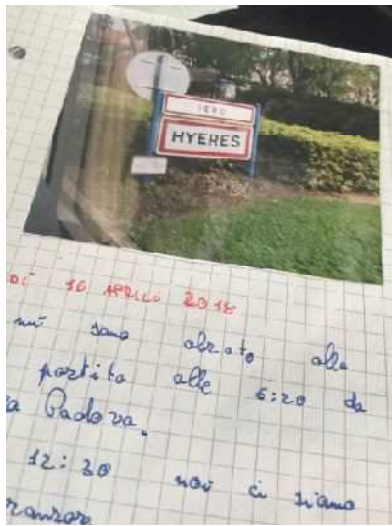 HYERES
DÌ 16 APRILE 2018
mi sono alzato alle
partito alle 6:20 da
Padova.
12:30 noi ci siamo